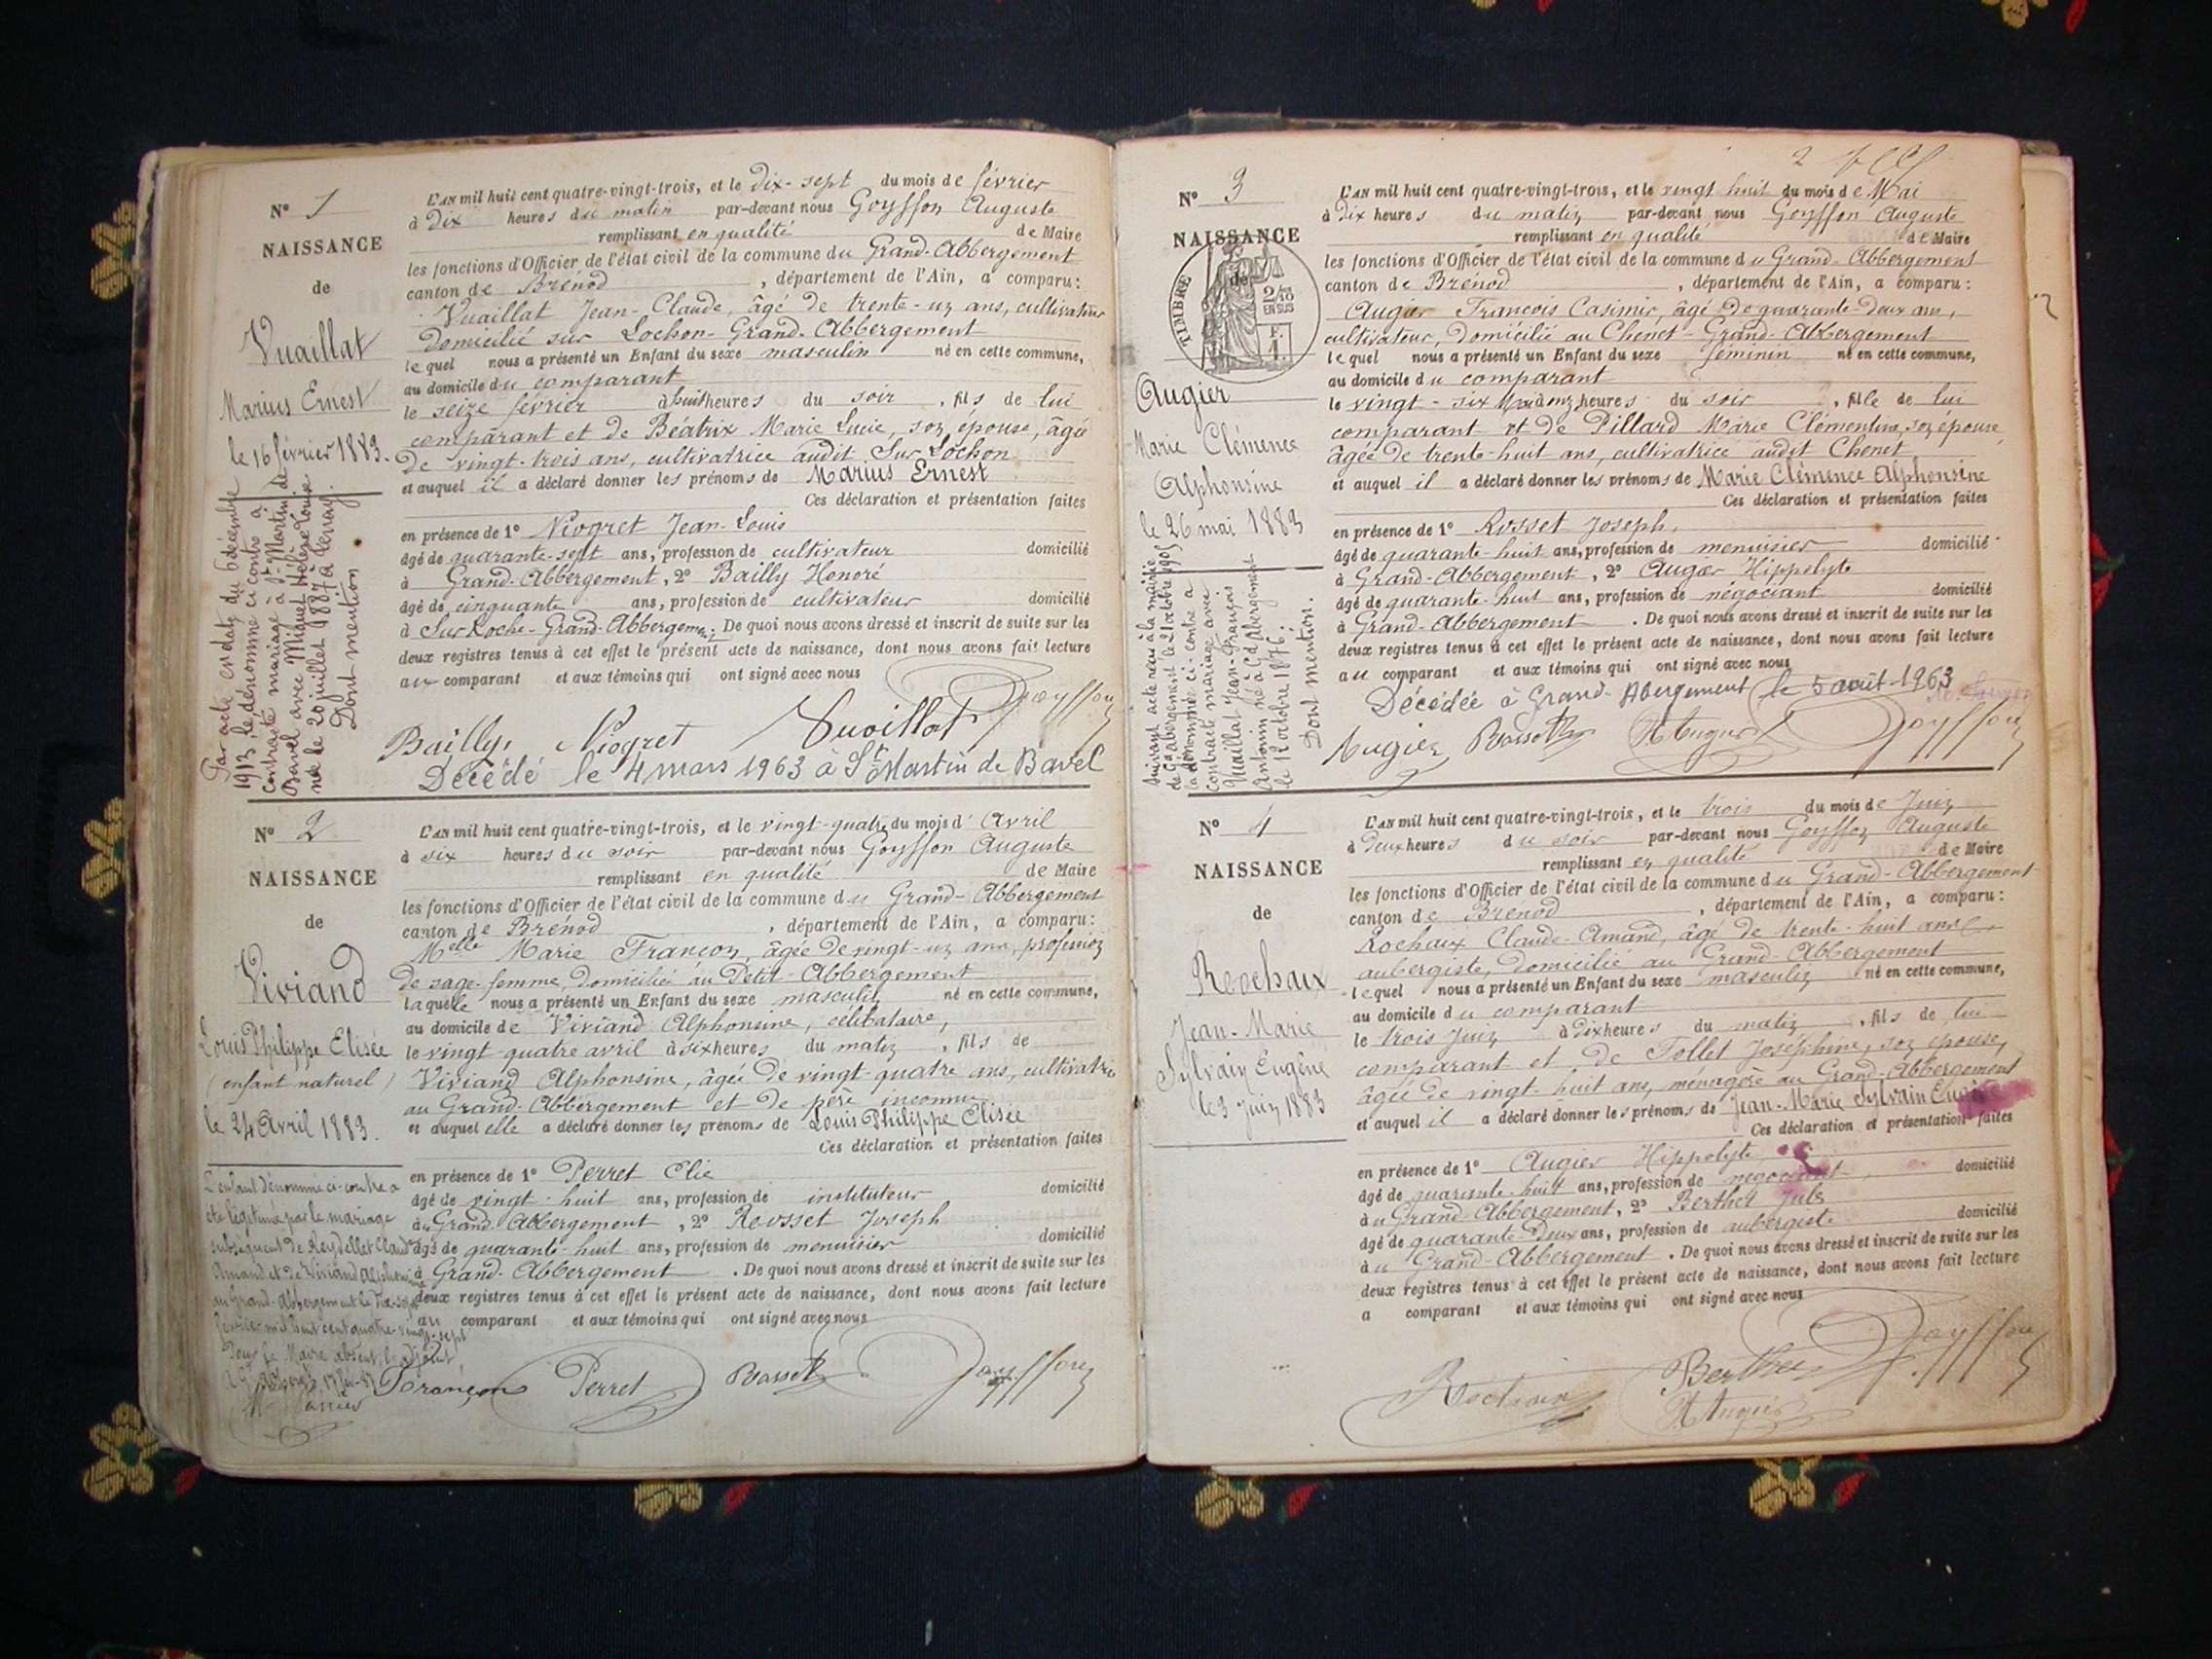 N° 1
NAISSANCE
de
Vuaillat
Marius Ernest
le 16 février 1883.
Par acte en date du 6 décembre
1913, le dénommé ci-contre a
contracté mariage à St Martin de
Bavel avec Miguet Hélène Louise
née le 20 juillet 1887 à
Dont mention.
L'AN mil huit cent quatre-vingt-trois, et le dix-sept du mois de février
à dix heures du matin par-devant nous Goyffon Auguste
remplissant en qualité de Maire
les fonctions d'Officier de l'état civil de la commune du Grand-Abbergement
canton de Brénod, département de l'Ain, a comparu:
Vuaillat Jean-Claude, âgé de trente-un ans, cultivateur
domicilié sur Lochon-Grand-Abbergement
lequel nous a présenté un Enfant du sexe masculin né en cette commune,
au domicile du comparant
le seize février à huit heures du soir, fils de lui
comparant et de Béatrix Marie Lucie, son épouse, âgée
de vingt-trois ans, cultivatrice audit Sur Lochon
et auquel il a déclaré donner les prénoms de Marius Ernest
Ces déclaration et présentation faites
en présence de 1° Niogret Jean-Louis
âgé de quarante-sept ans, profession de cultivateur domicilié
à Grand-Abbergement, 2° Bailly Honoré
âgé de cinquante ans, profession de cultivateur domicilié
à Sur Roche-Grand-Abbergemen. De quoi nous avons dressé et inscrit de suite sur les
deux registres tenus à cet effet le présent acte de naissance, dont nous avons fait lecture
au comparant et aux témoins qui ont signé avec nous
Bailly, Niogret Vuaillat Goyffon
Décédé le 4 mars 1963 à St Martin de Bavel
N° 2
NAISSANCE
de
Viviand
Louis Philippe Elisée
(enfant naturel)
le 24 Avril 1883.
L'enfant dénommé ci-contre a
été légitimé par le mariage
subséquent de Reydellet Claude
Amand et de Viviand Alphonsine
au Grand-Abbergement le dix-sept
février mil huit cent quatre-vingt-sept
Pour le Maire absent, l'adjoint
L'AN mil huit cent quatre-vingt-trois, et le vingt-quatre du mois d'Avril
à six heures du soir par-devant nous Goyffon Auguste
remplissant en qualité de Maire
les fonctions d'Officier de l'état civil de la commune du Grand-Abbergement
canton de Brénod, département de l'Ain, a comparu:
Melle Marie Françon, âgée de vingt-un ans, profession
de sage-femme, domiciliée au Petit-Abbergement
laquelle nous a présenté un Enfant du sexe masculin né en cette commune,
au domicile de Viviand Alphonsine, célibataire,
le vingt-quatre avril à six heures du matin, fils de
Viviand Alphonsine, âgée de vingt-quatre ans, cultivatrice
au Grand-Abbergement et de père inconnu
et auquel elle a déclaré donner les prénoms de Louis Philippe Elisée
Ces déclaration et présentation faites
en présence de 1° Perret Elie
âgé de vingt-huit ans, profession de instituteur domicilié
au Grand-Abbergement, 2° Rosset Joseph
âgé de quarante-huit ans, profession de menuisier domicilié
à Grand-Abbergement. De quoi nous avons dressé et inscrit de suite sur les
deux registres tenus à cet effet le présent acte de naissance, dont nous avons fait lecture
au comparant et aux témoins qui ont signé avec nous
Françon Perret Rosset Goyffon
2
N° 3
NAISSANCE
de
TIMBRE
2/10
EN SUS
F.
1.
Augier
Marie Clémence
Alphonsine
le 26 mai 1883
Suivant acte reçu à la mairie
de Gd abergement le 21 octobre 1905
la dénommée ci-contre a
contracté mariage avec
Vuaillat Jean-François
Antonin né à Gd Abergement
le 12 octobre 1876.
Dont mention.
L'AN mil huit cent quatre-vingt-trois, et le vingt huit du mois de Mai
à dix heures du matin par-devant nous Goyffon Auguste
remplissant en qualité de Maire
les fonctions d'Officier de l'état civil de la commune du Grand-Abbergement
canton de Brénod, département de l'Ain, a comparu:
Augier François Casimir, âgé de quarante-deux ans,
cultivateur, domicilié au Chenet-Grand-Abbergement
lequel nous a présenté un Enfant du sexe féminin né en cette commune,
au domicile du comparant
le vingt-six Mai à onze heures du soir, fille de lui
comparant et de Pillard Marie Clémentine, son épouse
âgée de trente-huit ans, cultivatrice audit Chenet
et auquel il a déclaré donner les prénoms de Marie Clémence Alphonsine
Ces déclaration et présentation faites
en présence de 1° Rosset Joseph,
âgé de quarante-huit ans, profession de menuisier domicilié
à Grand-Abbergement, 2° Augier Hippolyte
âgé de quarante-huit ans, profession de négociant domicilié
à Grand-Abbergement. De quoi nous avons dressé et inscrit de suite sur les
deux registres tenus à cet effet le présent acte de naissance, dont nous avons fait lecture
au comparant et aux témoins qui ont signé avec nous
Décédée à Grand-Abergement le 5 août 1963
Augier Rosset H Augier Goyffon
N° 4
NAISSANCE
de
Rochaix
Jean-Marie
Sylvain Eugène
le 3 Juin 1883
L'AN mil huit cent quatre-vingt-trois, et le trois du mois de Juin
à deux heures du soir par-devant nous Goyffon Auguste
remplissant en qualité de Maire
les fonctions d'Officier de l'état civil de la commune du Grand-Abbergement
canton de Brénod, département de l'Ain, a comparu:
Rochaix Claude-Amand, âgé de trente-huit ans,
aubergiste, domicilié au Grand-Abbergement
lequel nous a présenté un Enfant du sexe masculin né en cette commune,
au domicile du comparant
le trois Juin à dix heures du matin, fils de lui
comparant et de Tollet Joséphine, son épouse,
âgée de vingt-huit ans, ménagère au Grand-Abbergement
et auquel il a déclaré donner les prénoms de Jean-Marie Sylvain Eugène
Ces déclaration et présentation faites
en présence de 1° Augier Hippolyte
âgé de quarante-huit ans, profession de négociant domicilié
au Grand-Abbergement, 2° Berthet Jules
âgé de quarante-deux ans, profession de aubergiste domicilié
au Grand-Abbergement. De quoi nous avons dressé et inscrit de suite sur les
deux registres tenus à cet effet le présent acte de naissance, dont nous avons fait lecture
a comparant et aux témoins qui ont signé avec nous
Rochaix Berthet Goyffon
H Augier